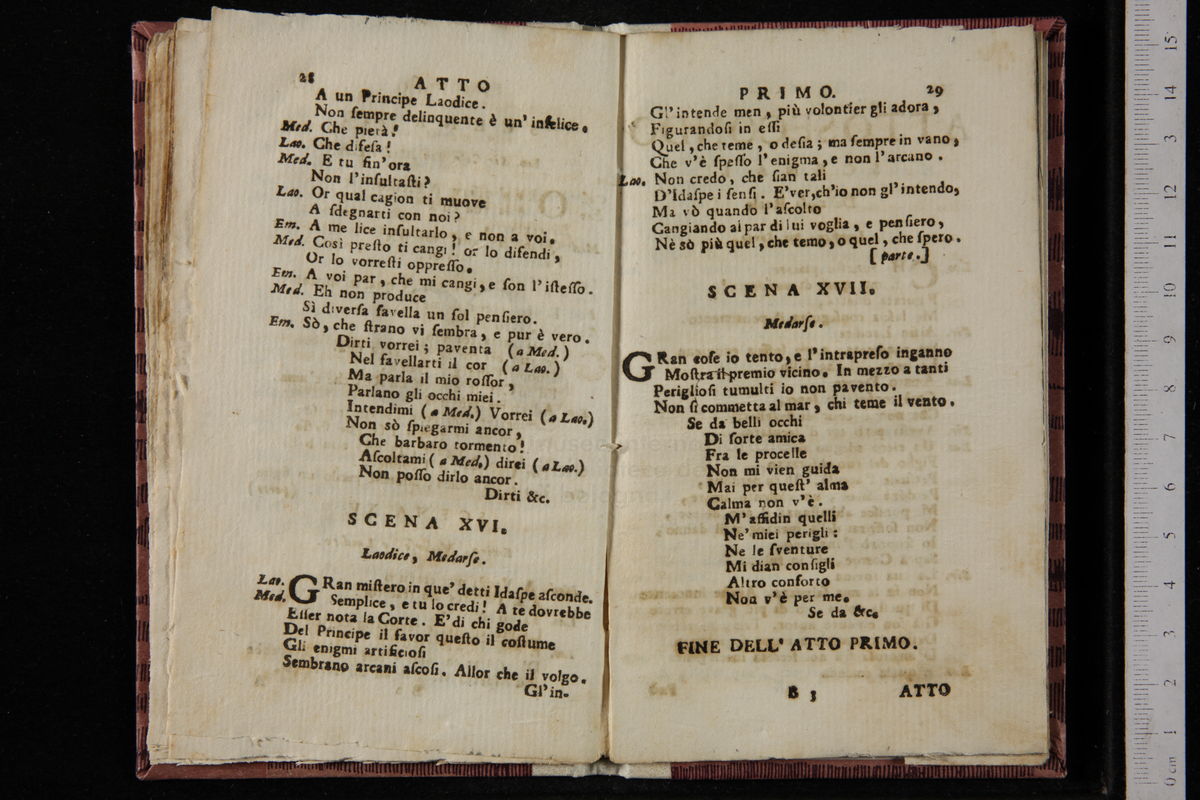 28 ATTO
A un Principe Laodice.
Non ſempre delinquente è un' infelice.
Med. Che pietà!
Lao. Che difeſa!
Med. E tu fin'ora
Non l'inſultaſti?
Lao. Or qual cagion ti muove
A ſdegnarti con noi?
Em. A me lice inſultarlo, e non a voi.
Med. Così preſto ti cangi! or lo difendi,
Or lo vorreſti oppreſſo.
Em. A voi par, che mi cangi, e ſon l'iſteſſo.
Med. Eh non produce
Sì diverſa favella un ſol penſiero.
Em. Sò, che ſtrano vi ſembra, e pur è vero.
Dirti vorrei; paventa (a Med.)
Nel favellarti il cor (a Lao.)
Ma parla il mio roſſor,
Parlano gli occhi miei.
Intendimi (a Med.) Vorrei (a Lao.)
Non sò ſpiegarmi ancor,
Che barbaro tormento!
Aſcoltami (a Med.) direi (a Lao.)
Non poſſo dirlo ancor.
Dirti &c.
SCENA XVI.
Laodice, Medarſe.
Lao. GRan miſtero in que' detti Idaſpe aſconde.
Med. Semplice, e tu lo credi! A te dovrebbe
Eſſer nota la Corte. E' di chi gode
Del Principe il favor queſto il coſtume
Gli enigmi artificioſi
Sembrano arcani aſcoſi. Allor che il volgo.
Gl'in-
PRIMO. 29
Gl'intende men, più volontier gli adora,
Figurandoſi in eſſi
Quel, che teme, o deſia; ma ſempre in vano,
Che v'è ſpeſſo l'enigma, e non l'arcano.
Lao. Non credo, che ſian tali
D'Idaſpe i ſenſi. E'ver, ch'io non gl'intendo,
Ma vò quando l'aſcolto
Cangiando al par di lui voglia, e penſiero,
Nè sò più quel, che temo, o quel, che ſpero.
[parte.]
SCENA XVII.
Medarſe.
GRan coſe io tento, e l'intrapreſo inganno
Moſtra il premio vicino. In mezzo a tanti
Periglioſi tumulti io non pavento.
Non ſi commetta al mar, chi teme il vento.
Se da belli occhi
Di ſorte amica
Fra le procelle
Non mi vien guida
Mai per queſt' alma
Calma non v'è.
M'affidin quelli
Ne' miei perigli:
Ne le ſventure
Mi dian conſigli
Altro conforto
Non v'è per me.
Se da &c.
FINE DELL' ATTO PRIMO.
B 3 ATTO
0 cm 1 2 3 4 5 6 7 8 9 10 11 12 13 14 15